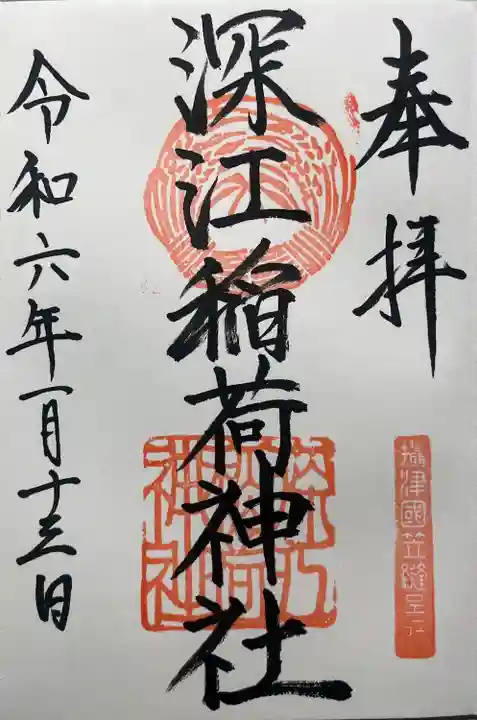 奉拝
攝津國笠縫
深江稲荷神社
令和六年一月十三日